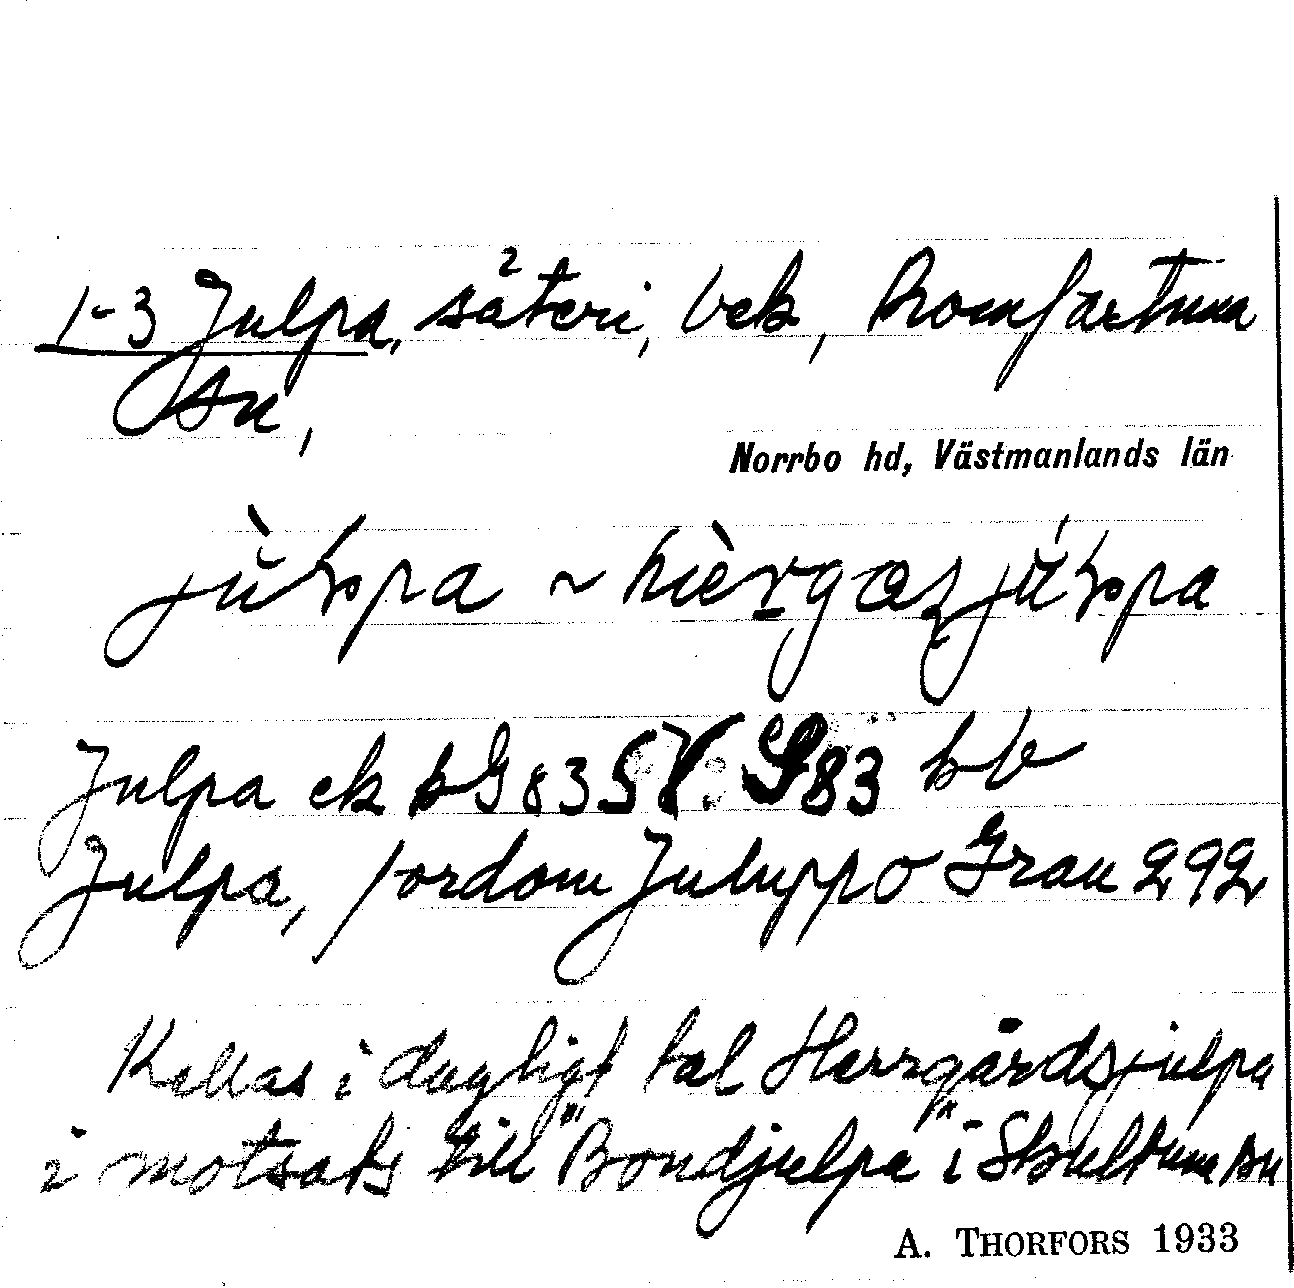 1-3 Julpa, säteri, bek, Romfartuna
sn,
Norrbo hd, Västmanlands län
Julpa ek bG 83 SV. S83 bb
Julpa, fordom Juluppo Grau 292
Kallas i dagligt tal Herrgårdsjulpa
i motsats till "Bondjulpa" i Skultuna sn
A. THORFORS 1933